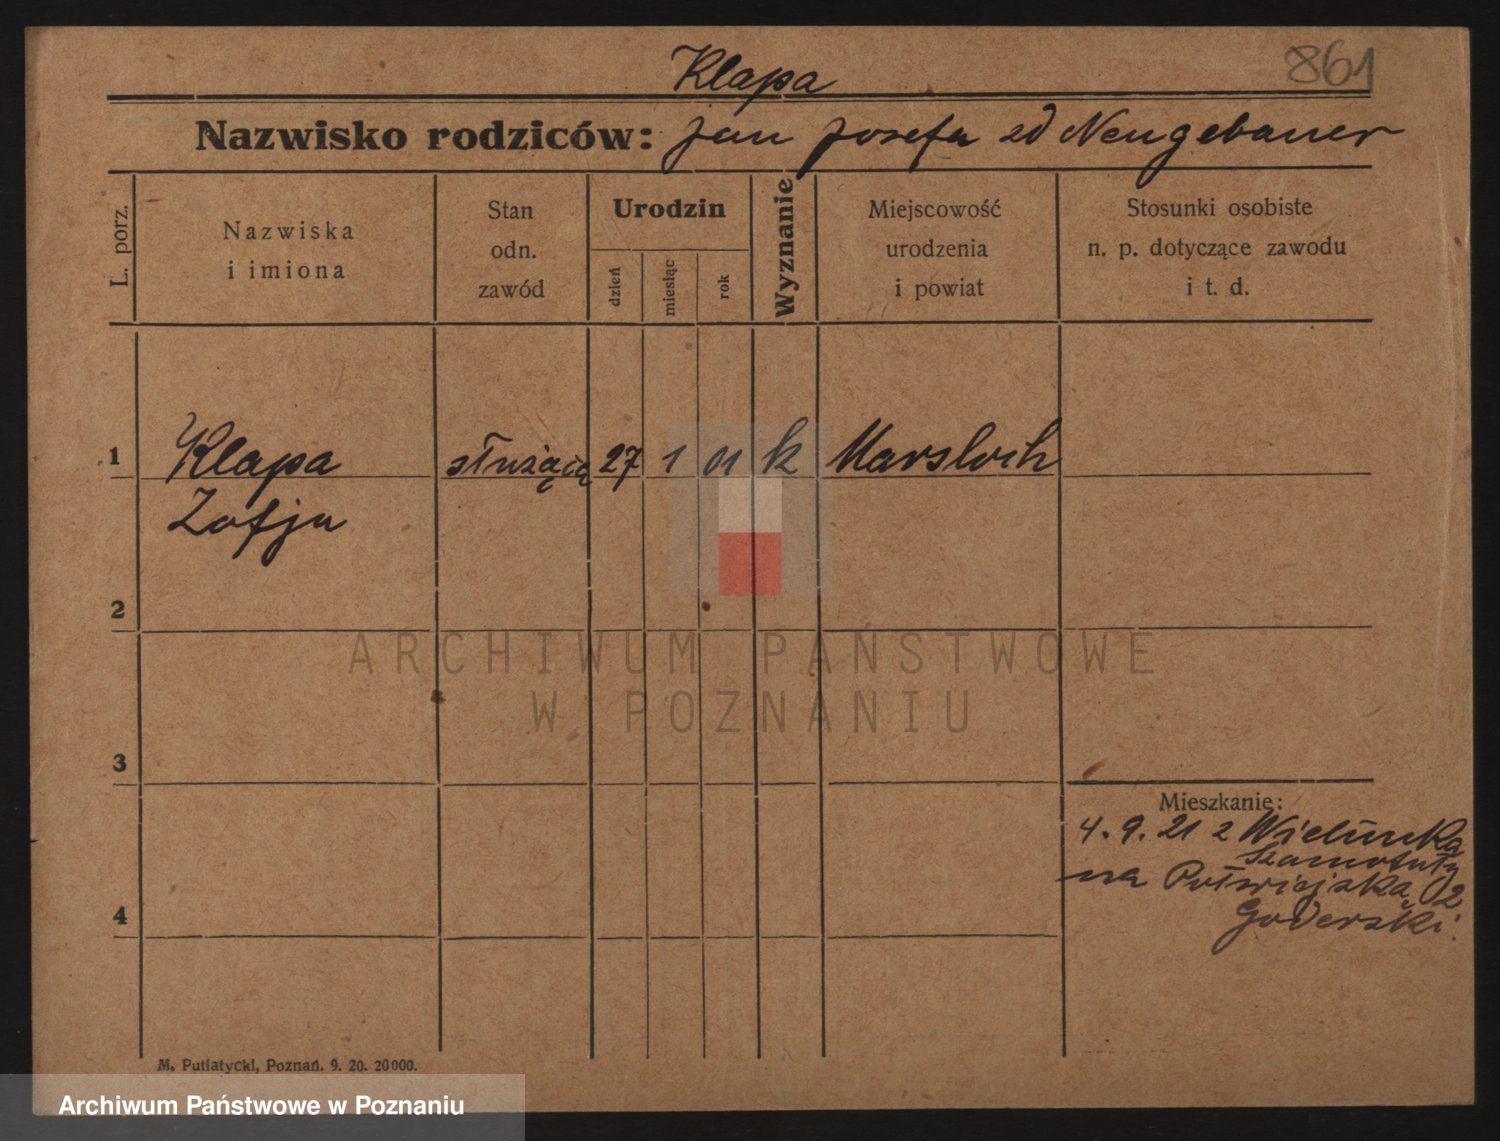 861
Klapa
Nazwisko rodziców: Jan Josefa zd Neugebauer
L. porz.
Nazwiska
i imiona
Stan
odn.
zawód
Urodzin
dzień
miesiąc
rok
Wyznanie
Miejscowość
urodzenia
i powiat
Stosunki osobiste
n. p. dotyczące zawodu
i t. d.
1
Klapa służącą 27 1 01 k
Zofja
2
ARCHIWUM PAŃSTWOWE
W POZNANIU
3
Mieszkanie:
4. 9. 21 z
Szamotuły
na Półwiejską 2
Goderski.
4
M. Putiatycki, Poznań. 9. 20. 20000.
Archiwum Państwowe w Poznaniu